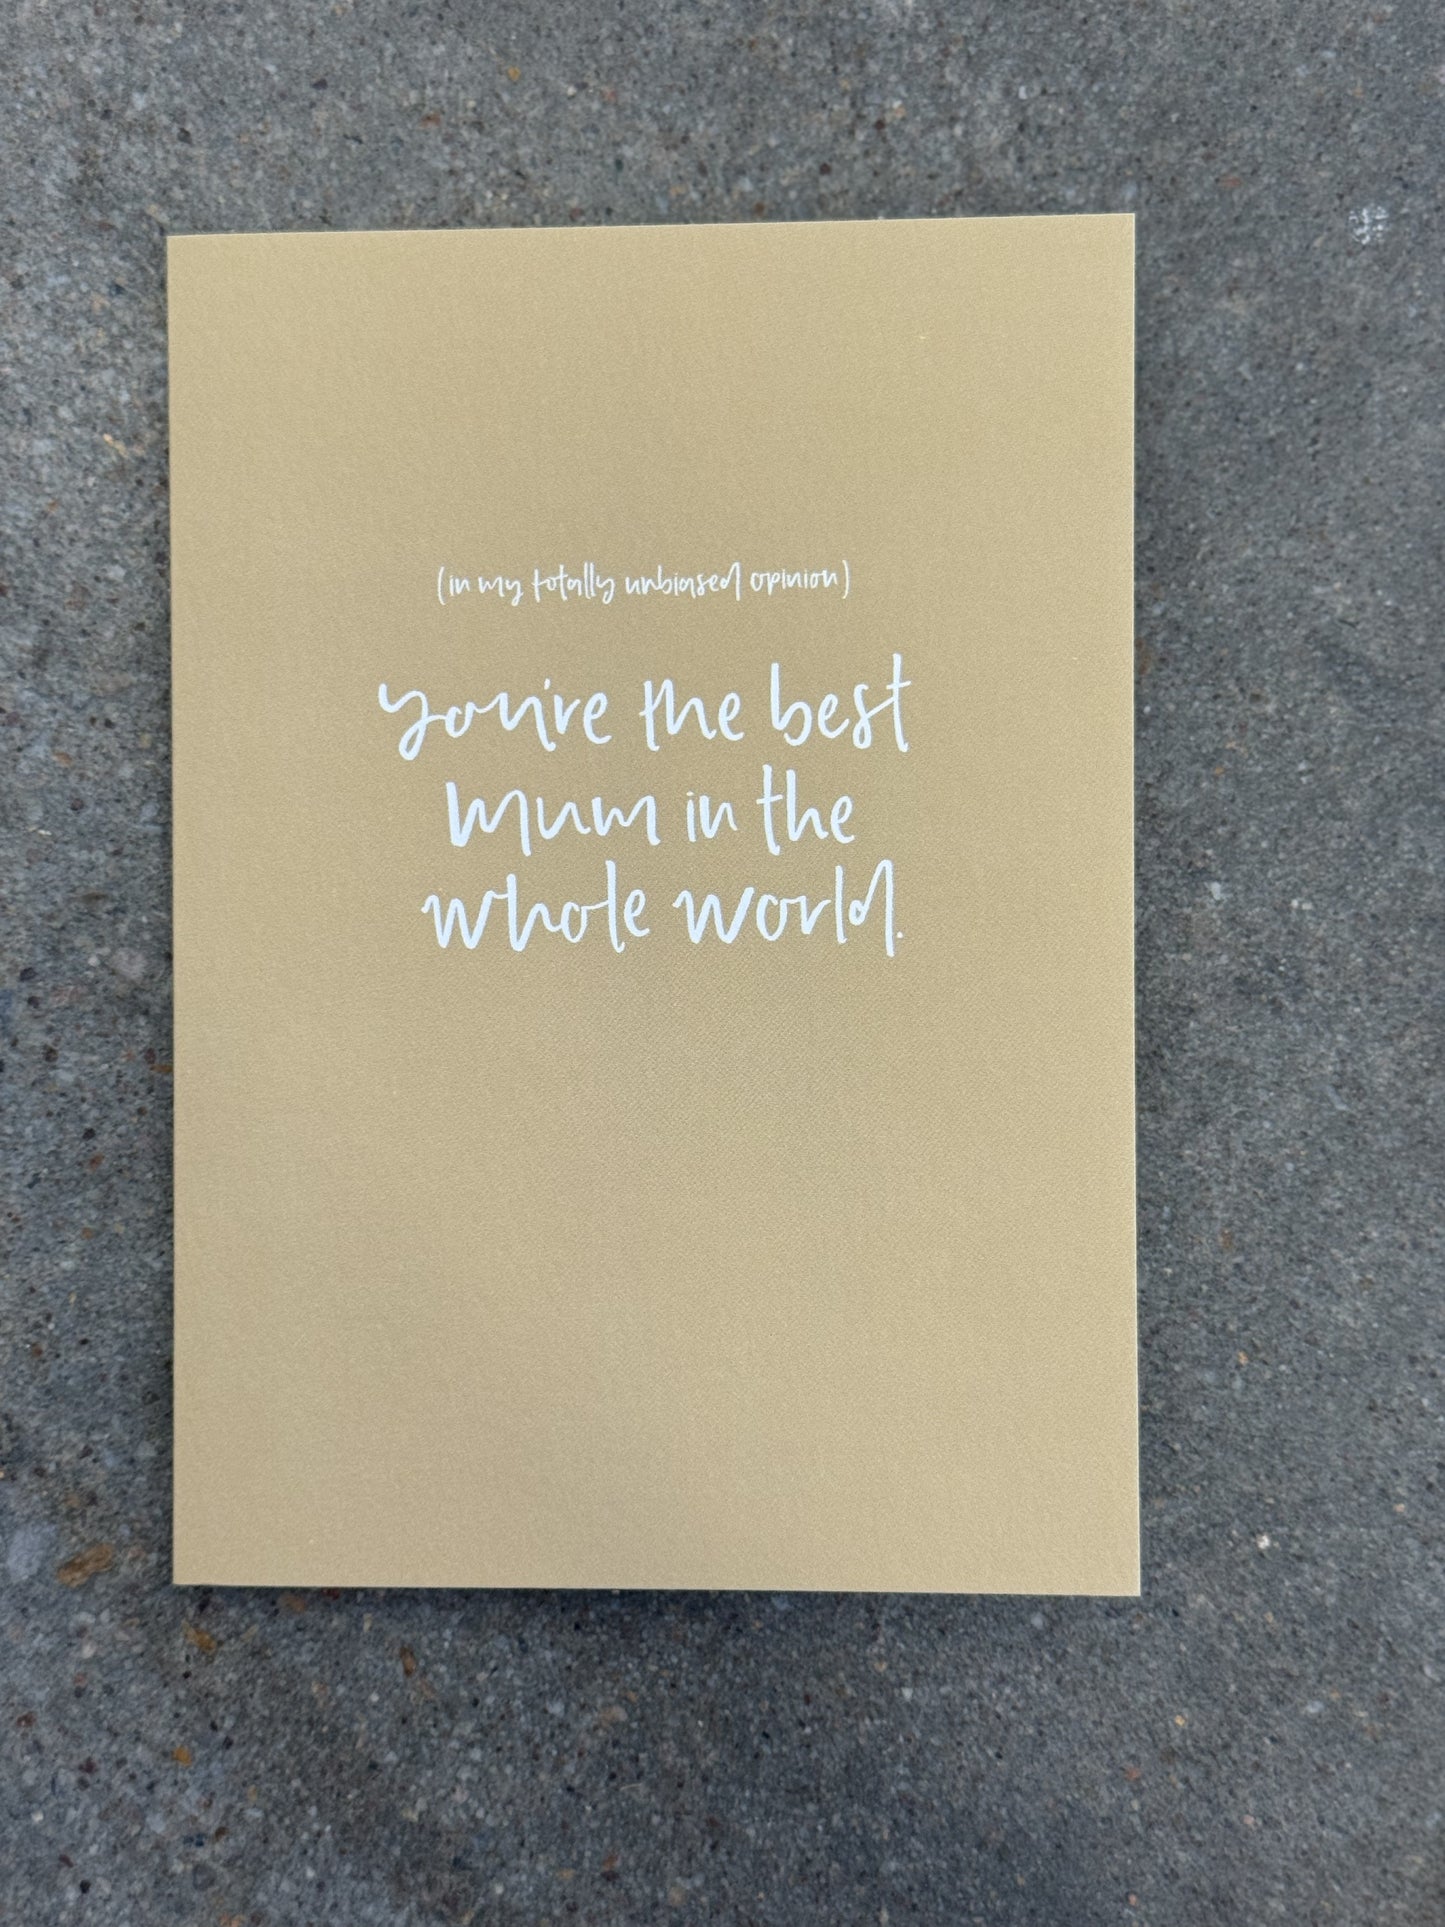 (in my totally unbiased opinion)
you're the best
mum in the
whole world.